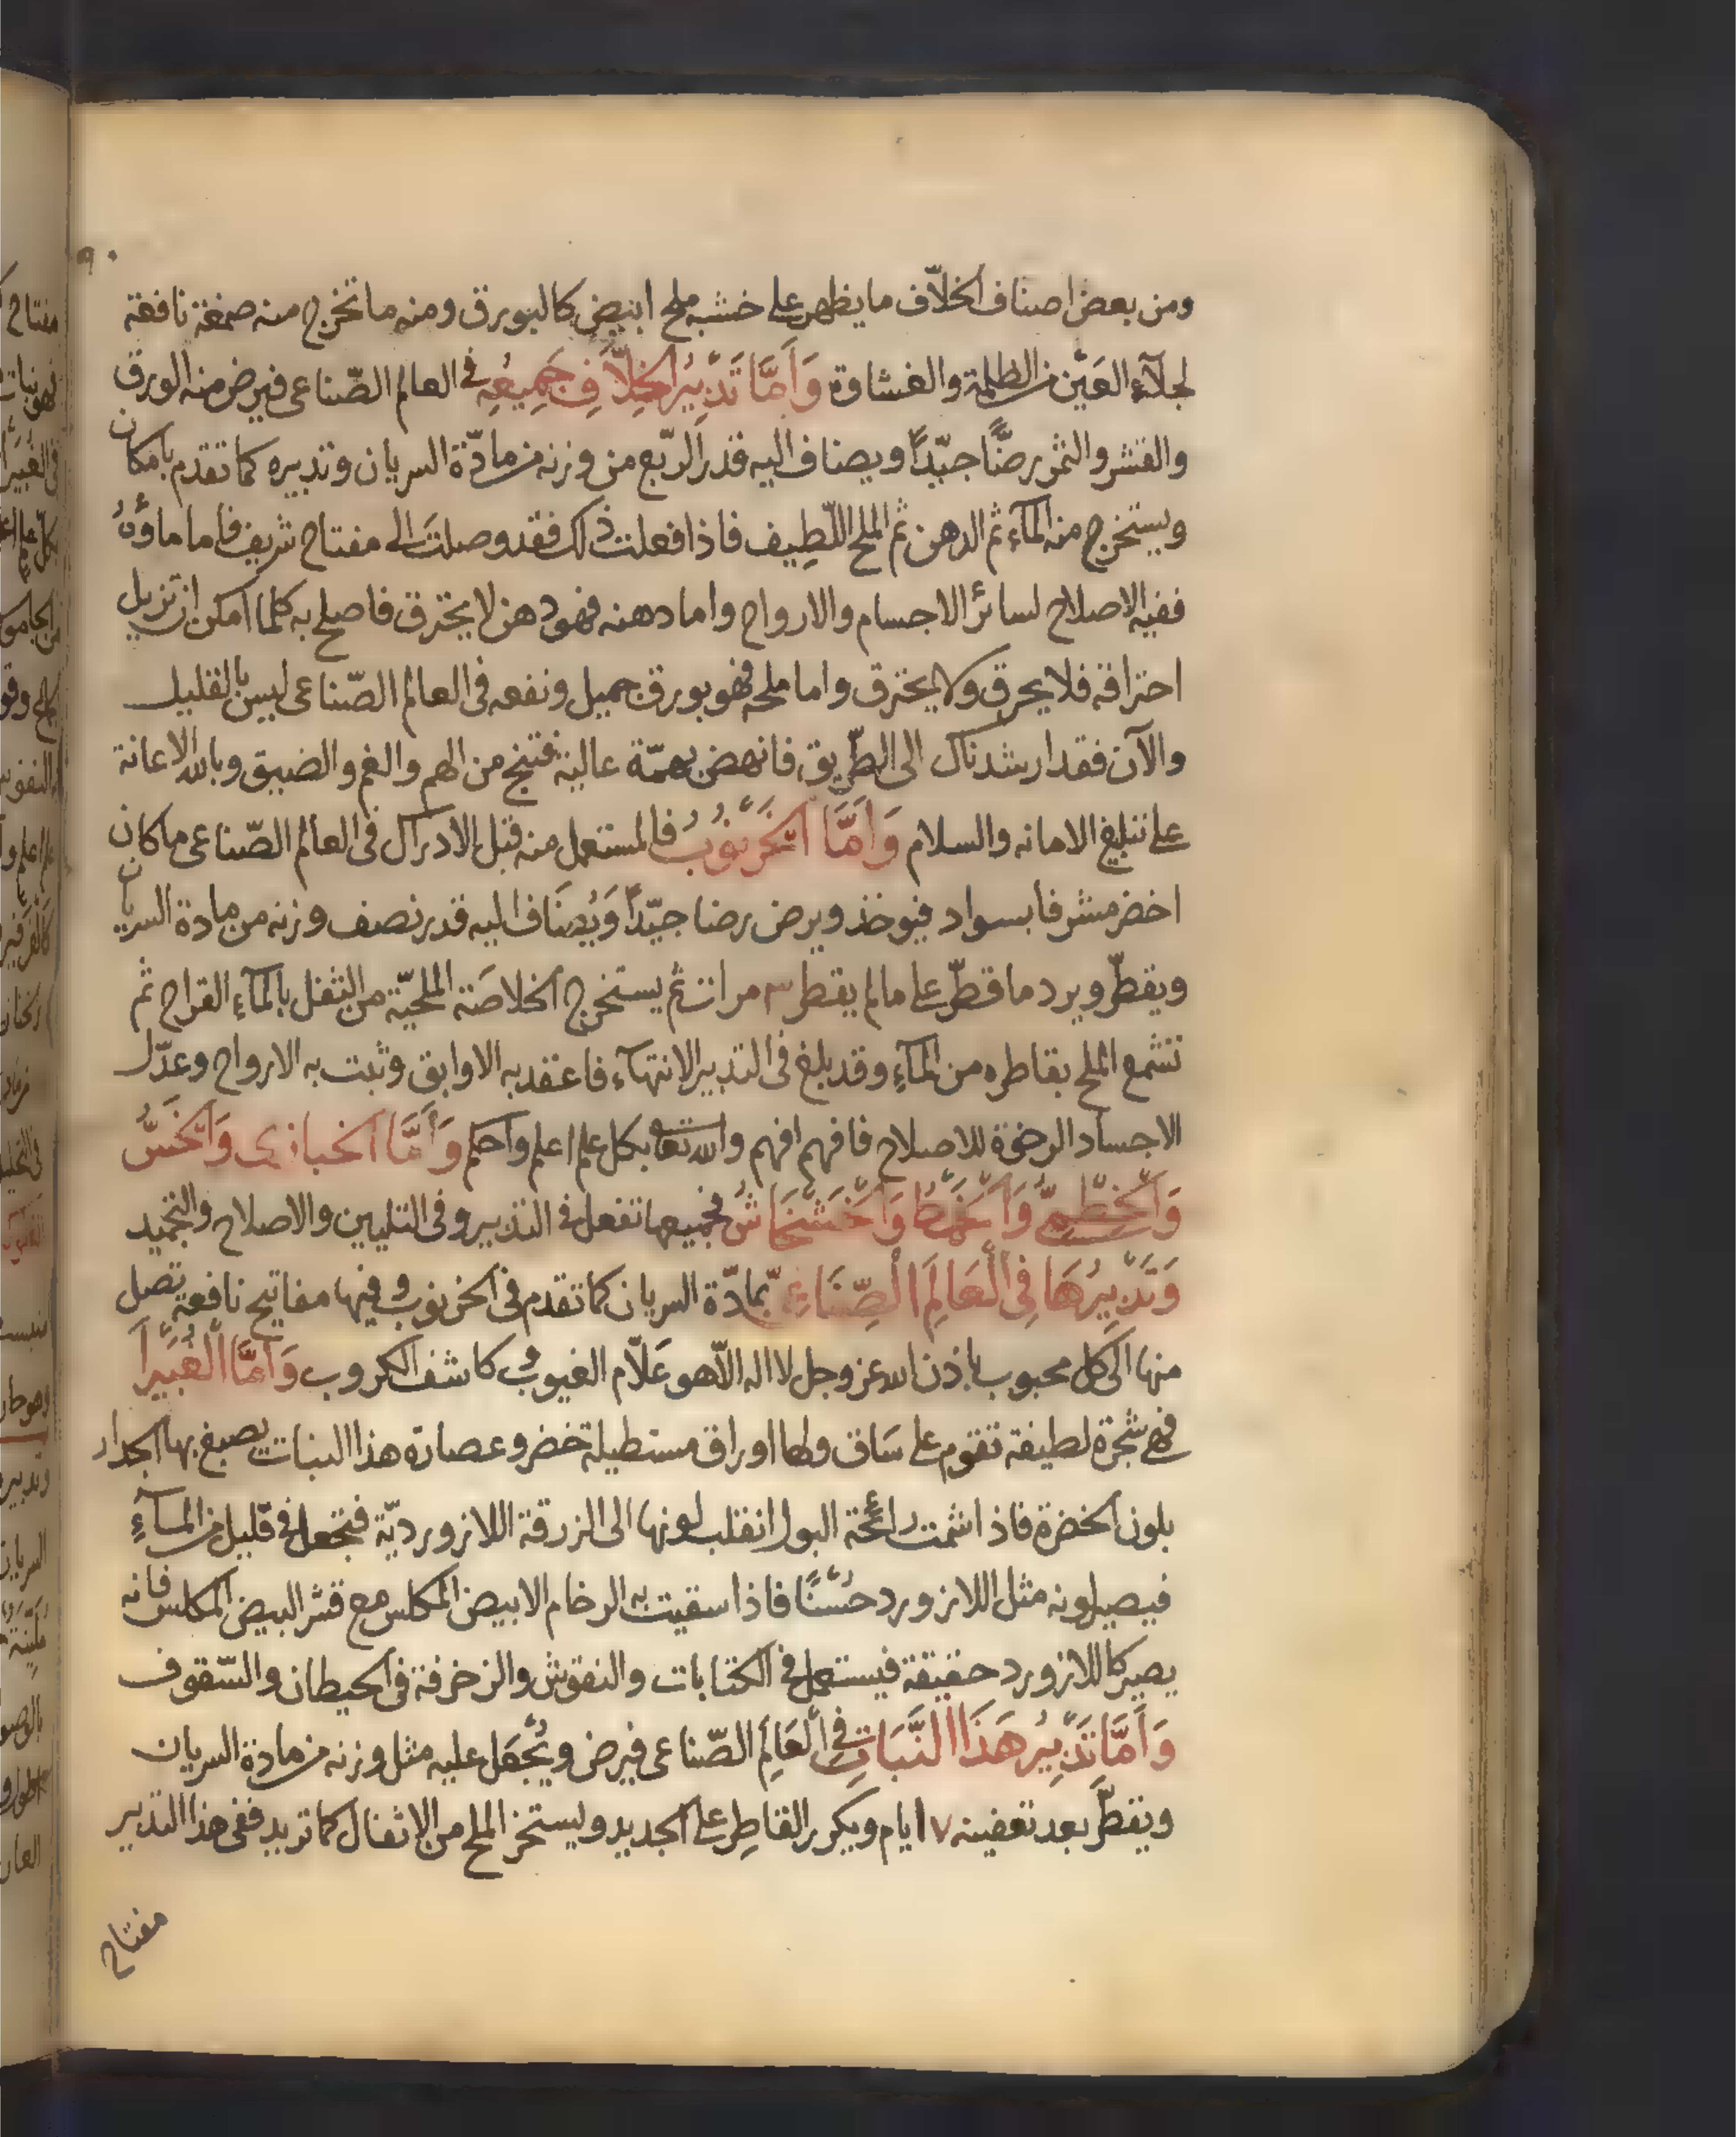 ٩٠
ومن بعض اصناف الخلاف ما يظهر على خشبه ملح ابيض كالبورق ومنه ما تخرج منه صمغة نافعة
لجلآء العَين من الظلمة والغشاوة وَأَمَّا تَدْبِيرُ الْخِلَافِ جَمِيعِهِ في العالم الصّناعى فيرض منه الورق
والقشر والثمر رضًّا جيّدًا ويضاف اليه قدر الرّبع من وزنه من مادّة السريان وتدبيره كما تقدم بامكان
ويستخرج منه المآء ثم الدهن ثم الملح اللّطِيف فاذا فعلت ذلك فقد وصلتَ الى مفتاح شريف فاما ماؤهُ
ففيه الاصلاح لسائر الاجسام والارواح واما دهنه فهو دهن لا يحترق فاصلح به كلما امكن ان تزيل
احتراقه فلا يحرق ولا يحترق واما ملحه فهو بورق جميل ونفعه فى العالم الصّناعى ليس بالقليل
والآن فقد ارشدناك الى الطّريق فانهض بهمّة عالية فتنج من الهم والغم والضيق وبالله الاعانة
على تبليغ الامانه والسلام وَأَمَّا الْخَرْنُوبُ فالمستعمل منه قبل الادراك فى العالم الصّناعى ما كان
اخضر مشرفا بسواد فيوخذ ويرض رضا جيّدًا وَيُضَاف اليه قدر نصف وزنه من مادة السريان
ويقطّر ويرد ما قطّر على ما لم يقطر ٣ مرات ثم يستخرج الخلاصَة الملحيّة من الثفل بالمآء القراح ثم
تشمع الملح بقاطره من المآءِ وقد بلغ فى التدبير الانتهآء فاعقد به الاوابق وثبت به الارواح وعدّل
الاجساد الرخوة للاصلاح فافهم افهم والله تعا بكل علم اعلم واحكم وَأَمَّا الخبازى وَالْخَسُّ
وَالْخِطْمِىُّ وَالْخَمْطُ وَالْخَشْخَاشُ فجميعها تفعل فى التدبير وفى التليين والاصلاح والتجميد
وَتَدْبِيرُهَا فِى الْعَالَمِ الْصِّنَاعِىِّ بمادّة السريان كما تقدم فى الخرنوب وفيها مفاتيح نافعة تصل
منها الى كل محبوب باذن الله عز وجل لا اله الاّ هو عَلاّم الغيوب وكاشف الكروب وَأَمَّا الْغُبَيْرَا
فهى شجرة لطيفة تقوم على سَاق ولها اوراق مستطيلة خضر وعصارة هذا النبات يصبغ بها الجدار
بلون الخضرة فاذا اشمت رائحة البول انقلب لونها الى الزرقة اللازورديّة فتجعل فى قليل من المآءِ
فيصير لونه مثل اللازورد حُسْنًا فاذا سقيت به الرخام الابيض المكلس مع قشر البيض المكلس فانه
يصير كاللازورد حقيقة فيستعمل فى الكتابات والنقوش والزخرفة فى الحيطان والسّقوف
وَأَمَّا تَدْبِيرُ هَذَا الْنَّبَاتِ فِى الْعَالَمِ الصّناعى فيرض ويُجْعَل عليه مثل وزنه من مادة السريان
ويقطّر بعد تعفينه ٧ ايام ويكرر القاطِر على الجديد ويستخرج الملح من الاثفال كما تريد ففى هذا التدبير
مفتاح